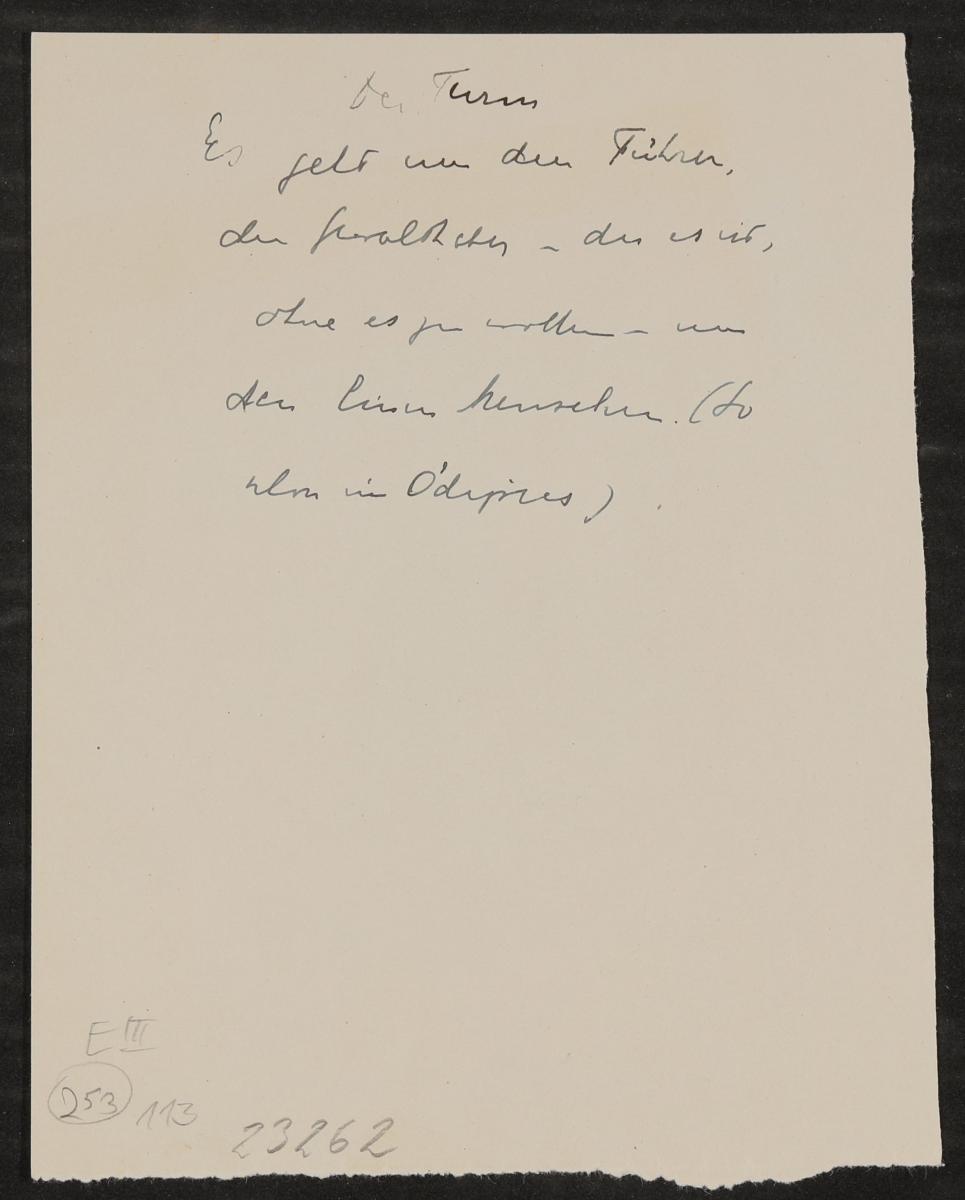 Der Turm
Es geht um den Führer,
den Gewalthaber – der es ist,
ohne es zu wollen – um
den Einen Menschen. (So
schon in Ödipus)
E III
253 113
23262